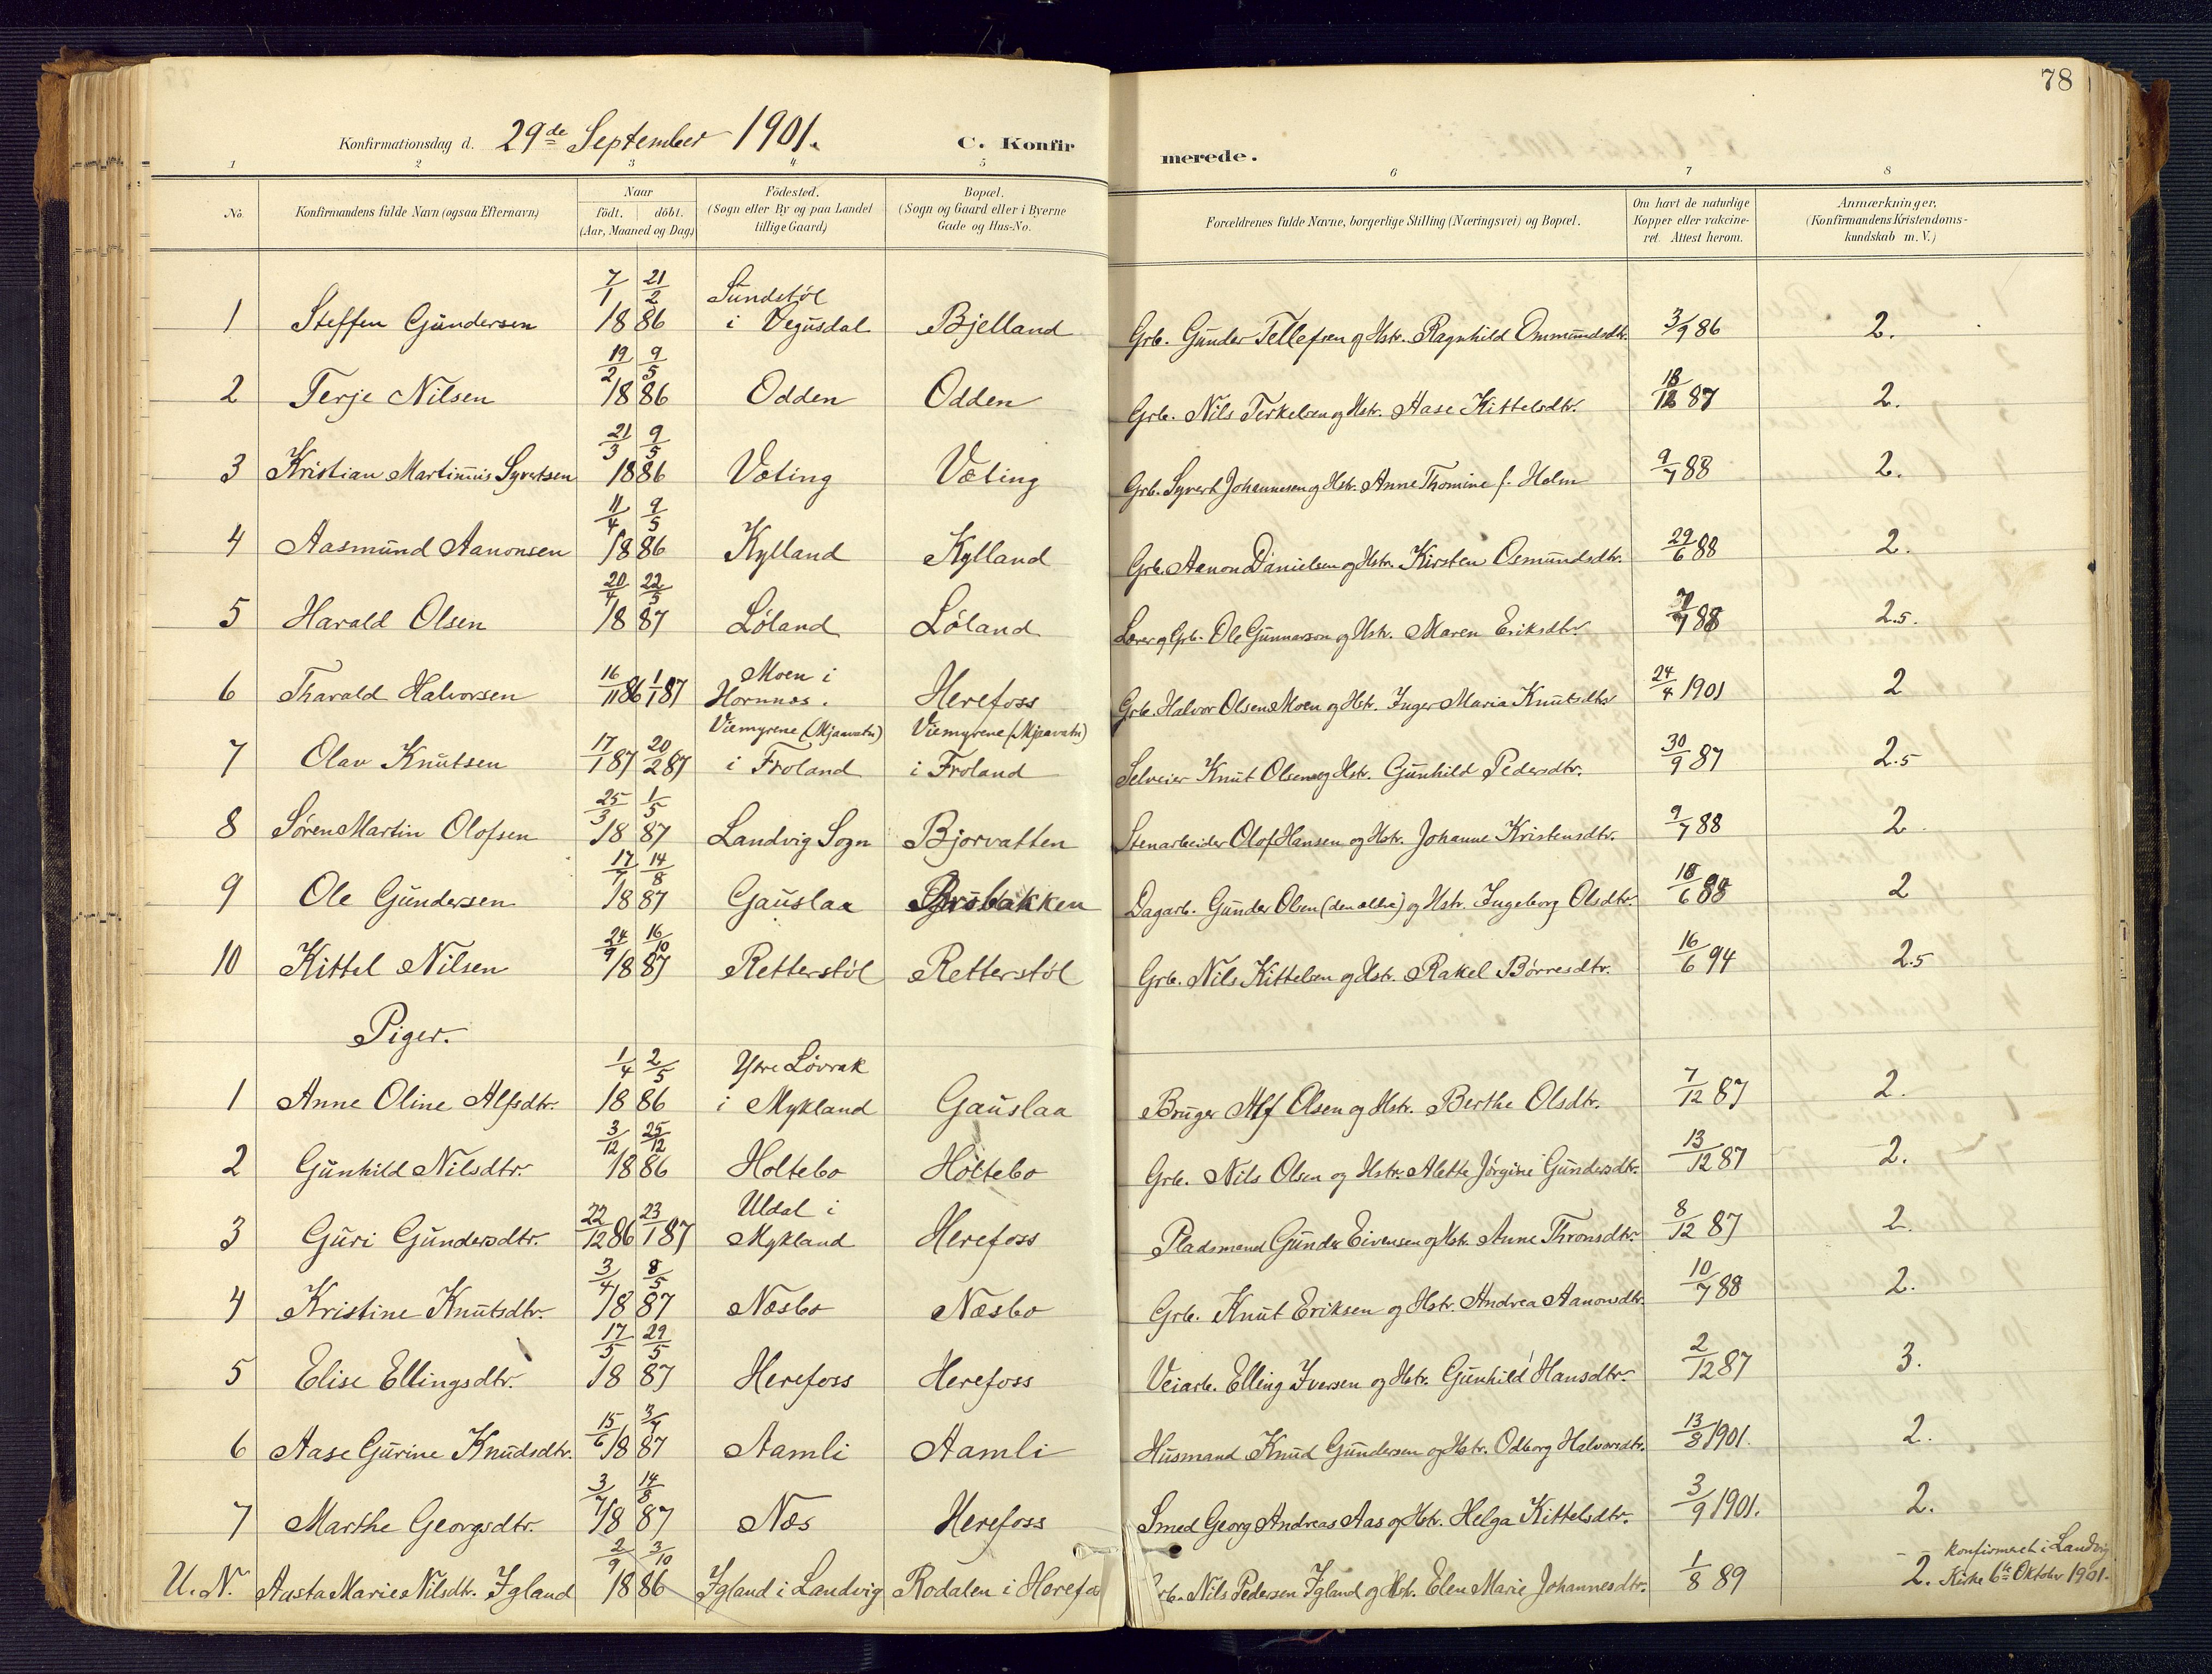 78
Konfirmationsdag d. 29de September 1901. C. Konfirmerede.
1 2 3 4 5 6 7 8
No. | Konfirmandens fulde Navn (ogsaa Efternavn) | Naar födt. döbt. (Aar, Maaned og Dag) | Födested. (Sogn eller By og paa Landet tillige Gaard) | Bopæl. (Sogn og Gaard eller i Byerne Gade og Hus-No. | Forældrenes fulde Navne, borgerlige Stilling (Næringsvei) og Bopæl. | Om havt de naturlige Kopper eller vakcineret. Attest herom. | Anmærkninger. (Konfirmandens Kristendomskundskab m. V.)
1 | Steffen Gundersen | 7/1 21/2 1886 | Sundstøl i Vegusdal | Bjelland | Grb. Gunder Tellefsen og Hstr. Ragnhild Ommundsdtr. | 3/9 86 | 2.
2 | Terje Nilsen | 19/2 9/5 1886 | Odden | Odden | Grb. Nils Terkelsen og Hstr. Aase Kittelsdtr. | 18/12 87 | 2.
3 | Kristian Martinius Syvertsen | 21/3 9/5 1886 | Væting | Væting | Grb. Syvert Johannesen og Hstr. Anne Thomine f. Holm | 9/7 88 | 2.
4 | Aasmund Aanonsen | 11/4 9/5 1886 | Kylland | Kylland | Grb. Aanon Danielsen og Hstr. Kirsten Osmundsdtr. | 29/6 88 | 2.
5 | Harald Olsen | 20/4 22/5 1887 | Løland | Løland | Lærer og Grb. Ole Gunnarson og Hstr. Maren Eriksdtr. | 7/7 88 | 2.5.
6 | Tharald Halvorsen | 16/11 86 1/1 87 | Moen i Hornnes. | Herefoss | Grb. Halvor Olsen Moen og Hstr. Inger Maria Knutsdtr | 24/4 1901 | 2
7 | Olav Knutsen | 17/1 87 20/2 87 | Viemyrene (Mjaavatn) i Froland | Viemyrene (Mjaavatn) i Froland | Selveier Knut Olsen og Hstr. Gunhild Pedersdtr. | 30/9 87 | 2.5
8 | Søren Martin Olofsen | 25/3 1/5 1887 | Landvig Sogn | Bjorvatten | Stenarbeider Olof Hansen og Hstr. Johanne Kristensdtr. | 9/7 88 | 2
9 | Ole Gundersen | 17/7 14/8 1887 | Gauslaa | | Dagarb. Gunder Olsen (den ældre) og Hstr. Ingeborg Olsdtr. | 18/6 88 | 2
10 | Kittel Nilsen | 24/9 16/10 1887 | Retterstøl | Retterstøl | Grb. Nils Kittelsen og Hstr. Rakel Børresdtr. | 16/6 94 | 2.5
Piger.
1 | Anne Oline Alfsdtr. | 1/4 2/5 1886 | Ytre Løvrak i Mykland | Gauslaa | Bruger Alf Olsen og Hstr. Berthe Olsdtr. | 7/12 87 | 2.
2 | Gunhild Nilsdtr. | 3/12 25/12 1886 | Holtebo | Holtebo | Grb. Nils Olsen og Hstr. Alette Jørgine Gundersdtr. | 13/12 87 | 2.
3 | Guri Gundersdtr. | 22/12 86 23/1 87 | Uldal i Mykland | Herefoss | Pladsmand Gunder Eivensen og Hstr. Anne Thronsdtr. | 8/12 87 | 2.
4 | Kristine Knutsdtr. | 3/4 8/5 1887 | Næsbo | Næsbo | Grb. Knut Eriksen og Hstr. Andrea Aanonsdtr. | 10/7 88 | 2.
5 | Elise Ellingsdtr. | 17/5 29/5 1887 | Herefoss | Herefoss | Veiarb. Elling Iversen og Hstr. Gunhild Hansdtr. | 2/12 87 | 3.
6 | Aase Gurine Knudsdtr. | 15/6 3/7 1887 | Aamli | Aamli | Husmand Knud Gundersen og Hstr. Odborg Halvorsdtr. | 13/8 1901. | 2.
7 | Marthe Georgsdtr. | 3/7 14/8 1887 | Næs | Herefoss | Smed Georg Andreas Aas og Hstr. Helga Kittelsdtr. | 3/9 1901. | 2.
U. N. | Aasta Marie Nilsdtr. Igland | 2/9 3/10 1886 | Igland i Landvig | Rodalen i Herefo | Grb. Nils Pedersen Igland og Hstr. Elen Marie Johannesdtr. | 1/8 89 | 2. Konfirmeret i Landvig Kirke 6te Oktober 1901.